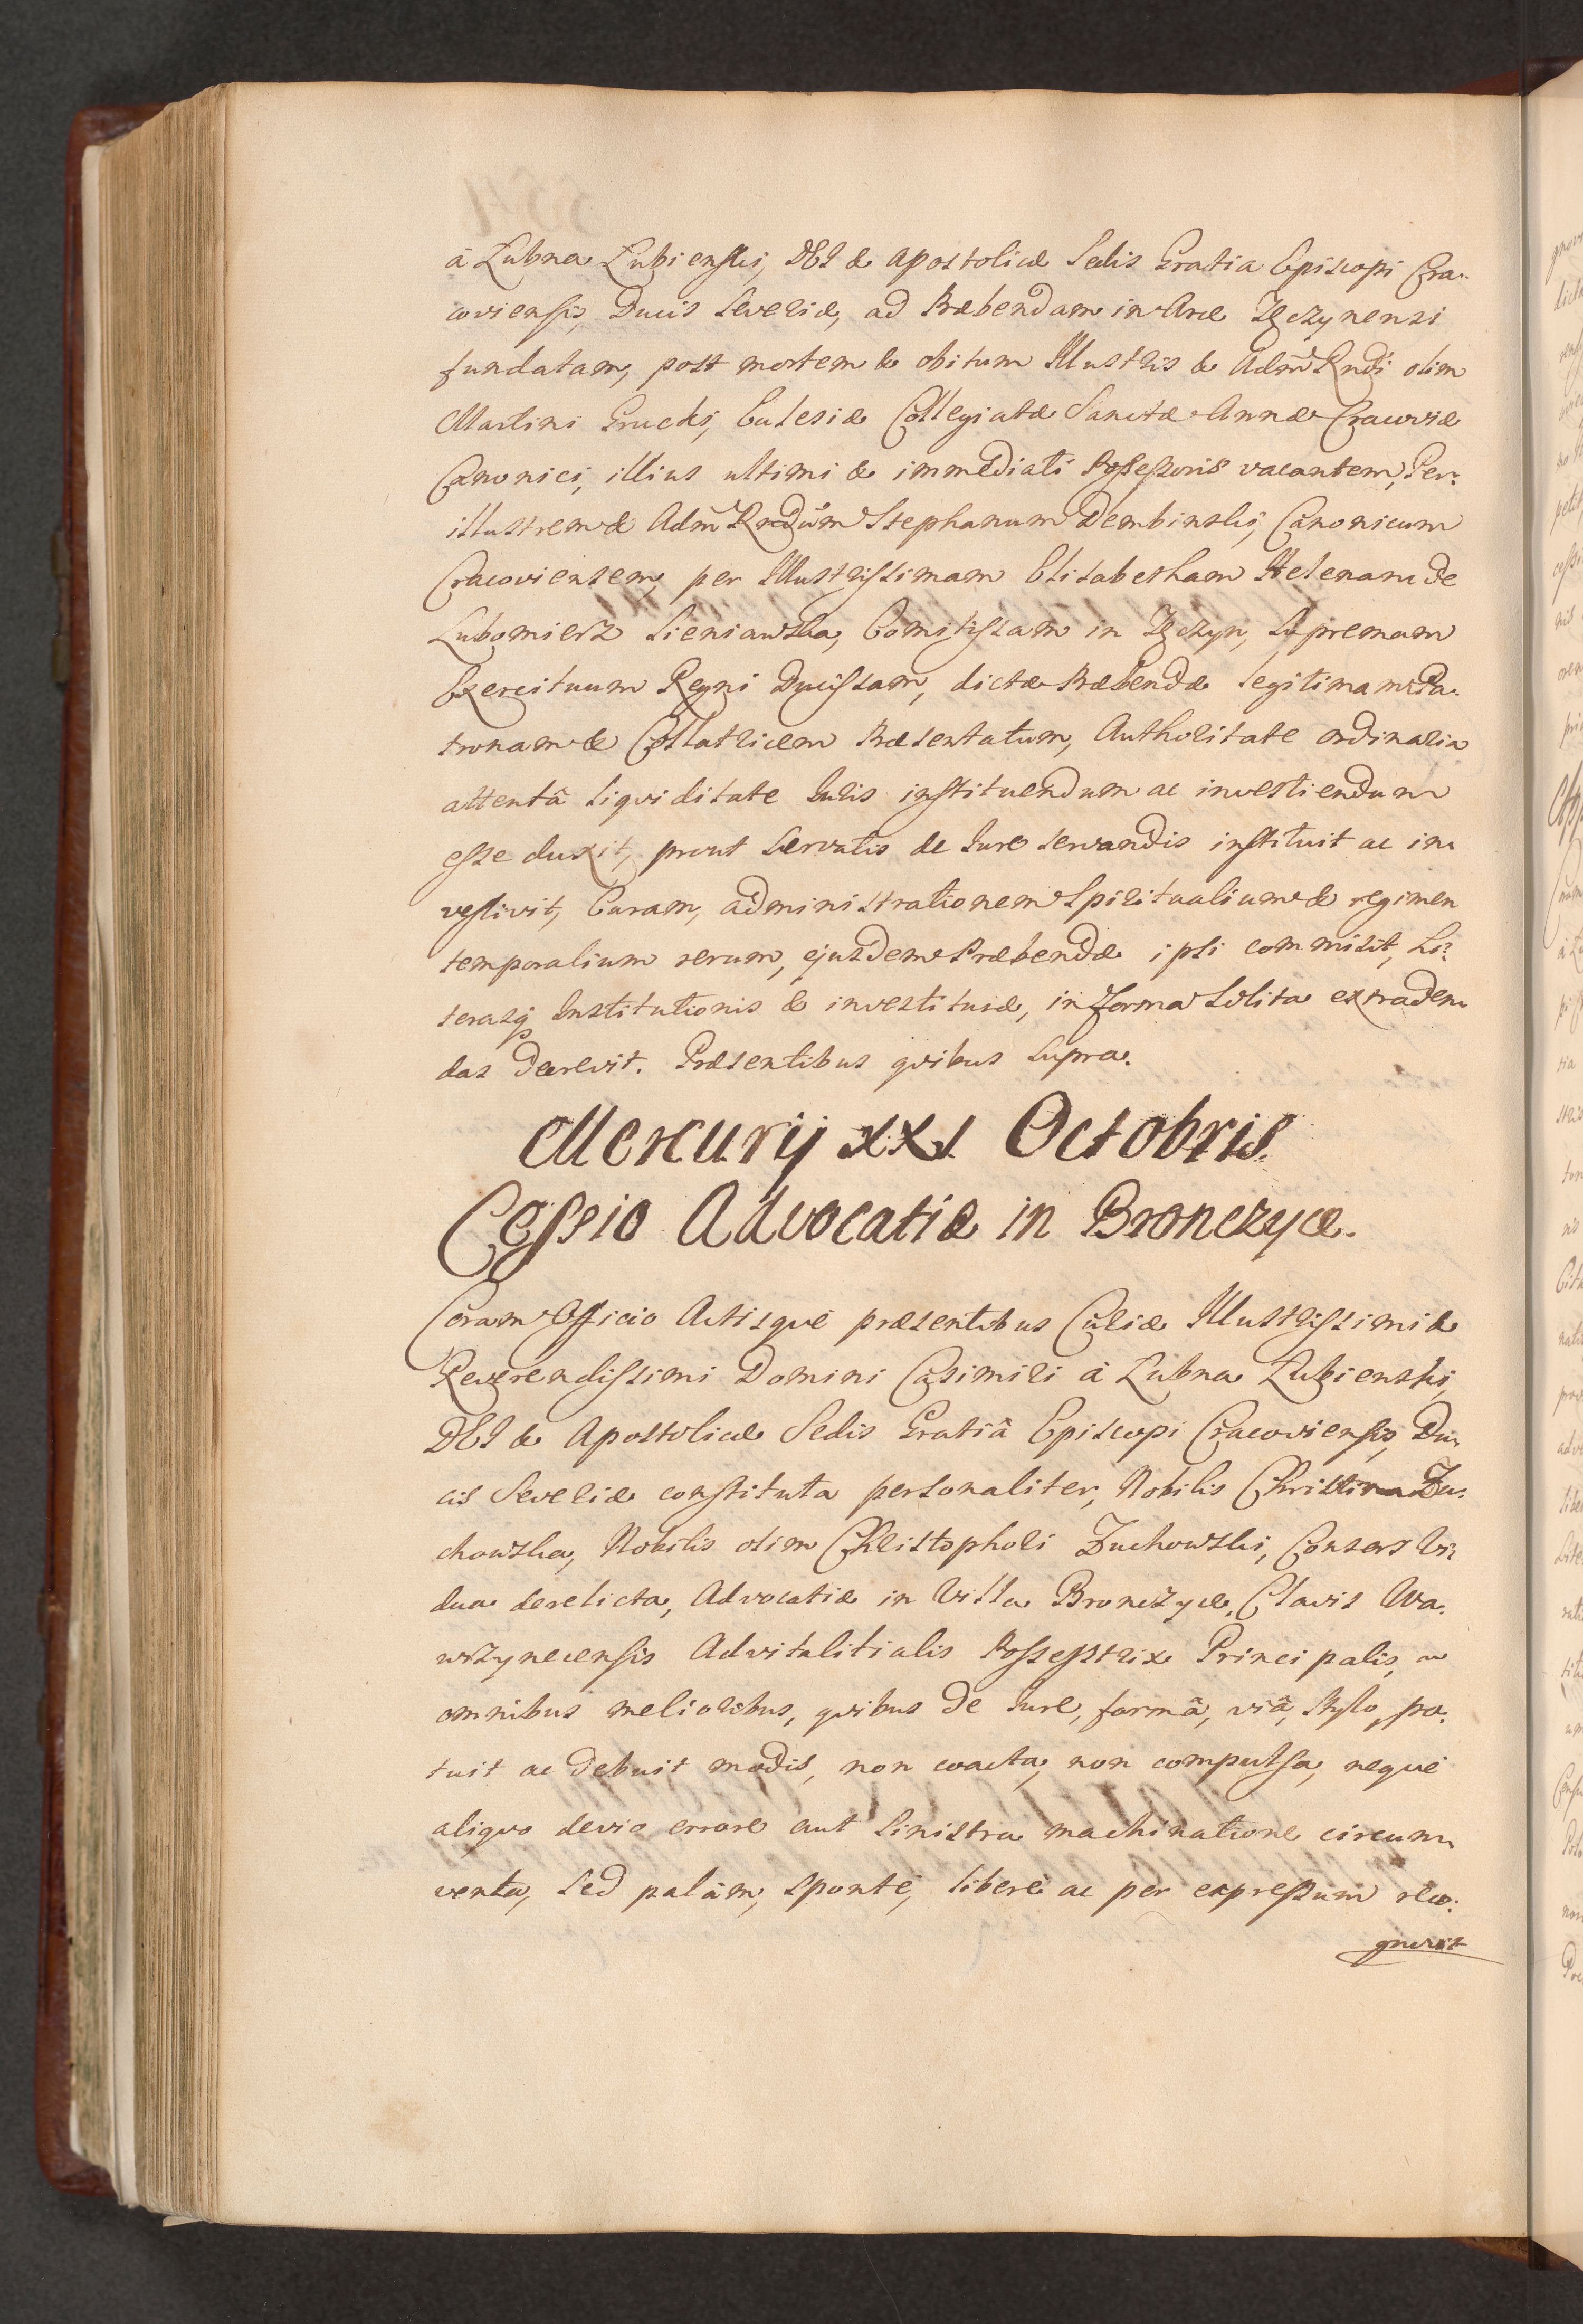 à Lubna Lubienski, DEI & Apostolicæ Sedis Gratia Episcopi Cra-
coviensis, Ducis Severiæ, ad Præbendam in Arce Tęczynensi
fundatam, post mortem & obitum Illustris & Adm̃ Rndi olim
Martini Grucki, Ecclesiæ Collegiatæ Sanctæ Annæ Cracoviæ
Canonici, illius ultimi & immediati Possessoris vacantem, Per-
illustrem & Adm̃ Rndũm Stephanum Dembinski, Canonicum
Cracoviensem, per Illustrissimam Elisabetham Helenam de
Lubomierz Sieniawska, Comitissam in Tęczyn, Supremam
Exercituum Regni Ducissam, dictæ Præbendæ legitimam Pa-
tronam & Collatricem Præsentatum, Authoritate ordinaria
attentâ liqviditate Iuris instituendum ac investiendum
esse duxit, prout servatis de Iure servandis instituit ac in-
vestivit, Curam, administrationem Spiritualium & regimen
temporalium rerum, ejusdem Præbendæ ipsi commisit, Li-
terasq̃ Institutionis & investituræ, in forma solita extraden-
das decrevit. Præsentibus qvibus supra.
Mercurij XXI Octobris.
Cessio Advocatiæ in Bronczyce.
Coram Officio Actisqve præsentibus Curiæ Illustrissimi &
Reverendissimi Domini Casimiri à Lubna Lubienski,
DEI & Apostolicæ Sedis Gratiâ Episcopi Cracoviensis, Du-
cis Severiæ constituta personaliter, Nobilis Christina Zu-
chowska, Nobilis olim Christophori Zuchowski, Consors Vi-
dua derelicta, Advocatiæ in Villa Bronczyce, Clavis Wa-
wrzynecensis Advitalitialis Possesstrix Principalis,
omnibus melioribus, qvibus de Iure, formâ, viâ, stylo, po-
tuit ac debuit modis, non coacta, non compulsa, neqvè
aliqvo devio errore aut sinistra machinatione circum-
venta, sed palàm, spontè, liberè ac per expressum reco-
gnovit